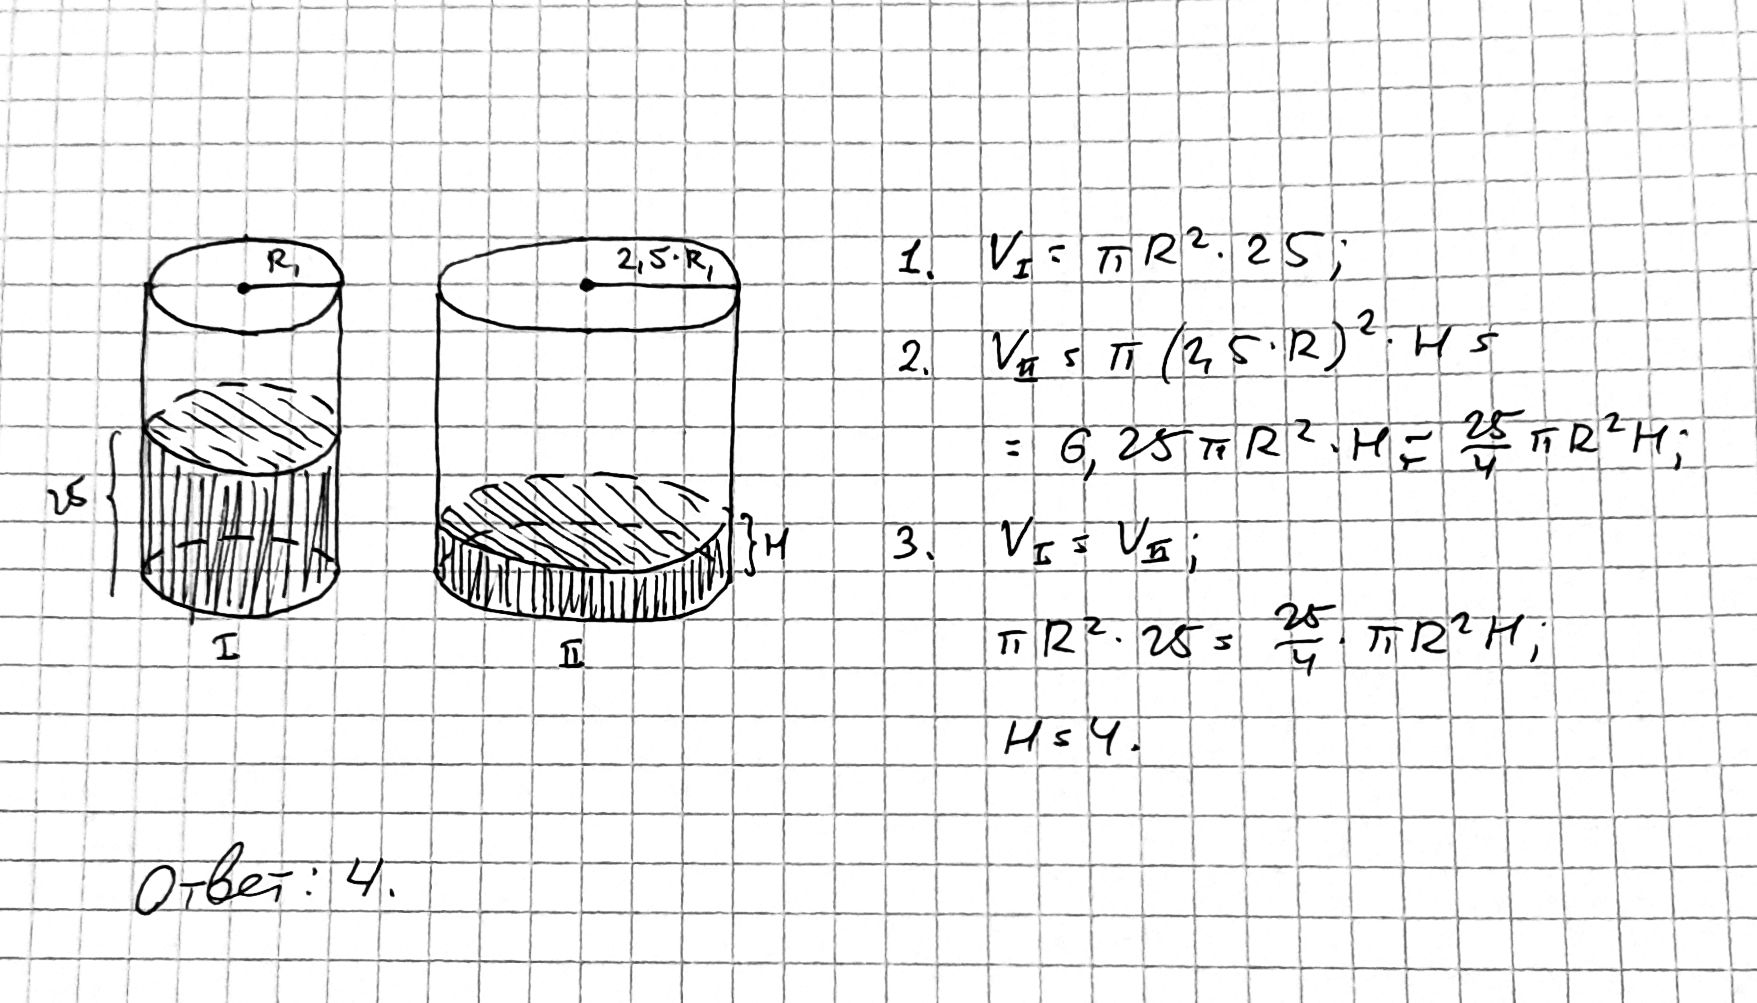 R₁
2,5·R₁
25
H
I
II
1. V_I = πR²·25;
2. V_II = π(2,5·R)²·H =
= 6,25πR²·H = 25/4 πR²H;
3. V_I = V_II;
πR²·25 = 25/4·πR²H;
H = 4.
Ответ: 4.